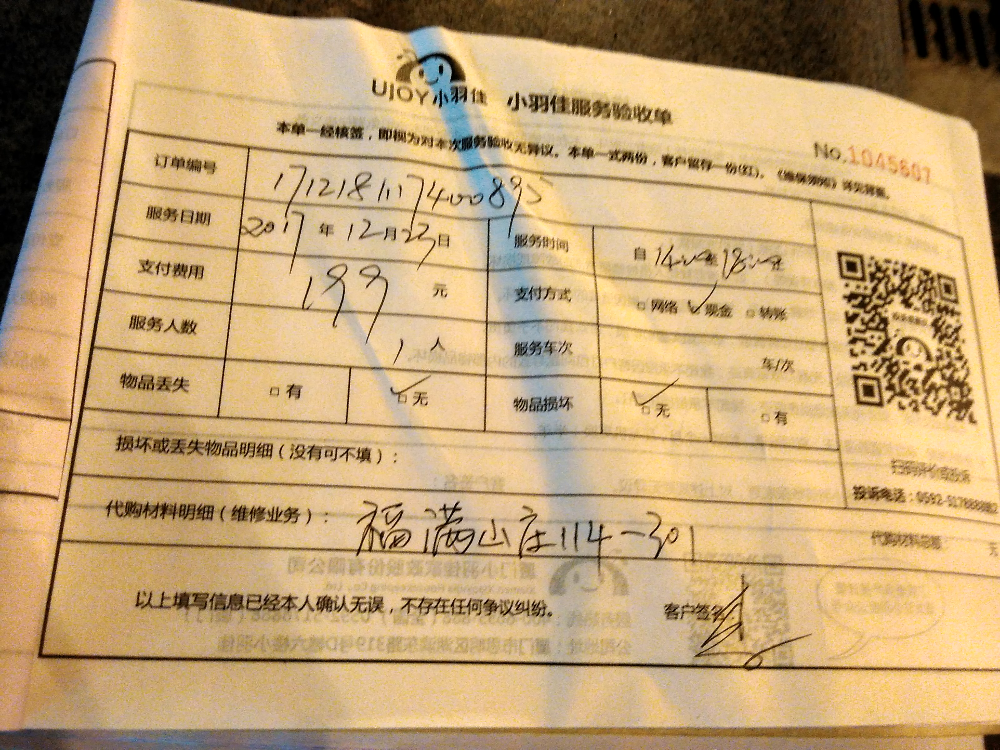 UJOY小羽佳 小羽佳服务验收单
本单一经核签，即视为对本次服务验收无异议。本单一式两份，客户留存一份(红)。《维保须知》详见背面。
No.1045607
订单编号 1712181117400895
服务日期 2017 年 12 月 23 日 服务时间 自 14:00 至 18:00 止
支付费用 199 元 支付方式 □网络 ✓现金 □转账
服务人数 1 人 服务车次 车/次
物品丢失 □有 ✓□无 物品损坏 ✓□无 □有
扫码评价或投诉
投诉电话：0592-5178888
损坏或丢失物品明细（没有可不填）：
代购材料明细（维修业务）：福满山庄114-301
代购材料总额 元
以上填写信息已经本人确认无误，不存在任何争议纠纷。 客户签名